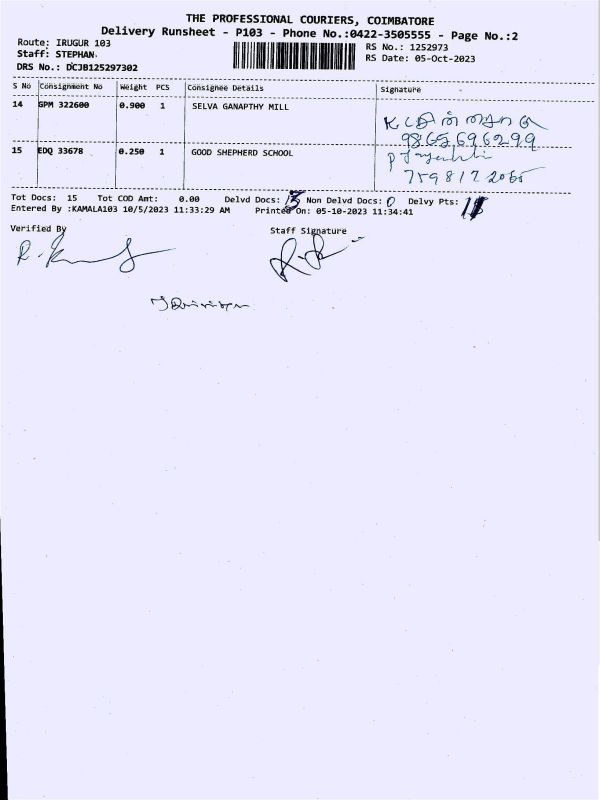 THE PROFESSIONAL COURIERS, COIMBATORE
Delivery Runsheet - P103 - Phone No.:0422-3505555 - Page No.:2
Route: IRUGUR 103
RS No.: 1252973
Staff: STEPHAN
RS Date: 05-Oct-2023
DRS No.: DCJB125297302
S No Consignment No Weight PCS Consignee Details Signature
14 GPM 322600 0.900 1 SELVA GANAPTHY MILL
9865696299
15 EDQ 33678 0.250 1 GOOD SHEPHERD SCHOOL
Tot Docs: 15 Tot COD Amt: 0.00 Delvd Docs: 15 Non Delvd Docs: 0 Delvy Pts:
Entered By :KAMALA103 10/5/2023 11:33:29 AM Printed On: 05-10-2023 11:34:41
Verified By Staff Signature